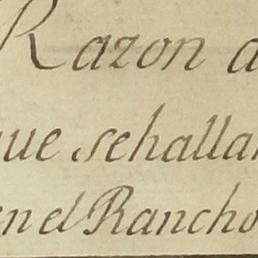 Razon d
que sehallan
en el Rancho